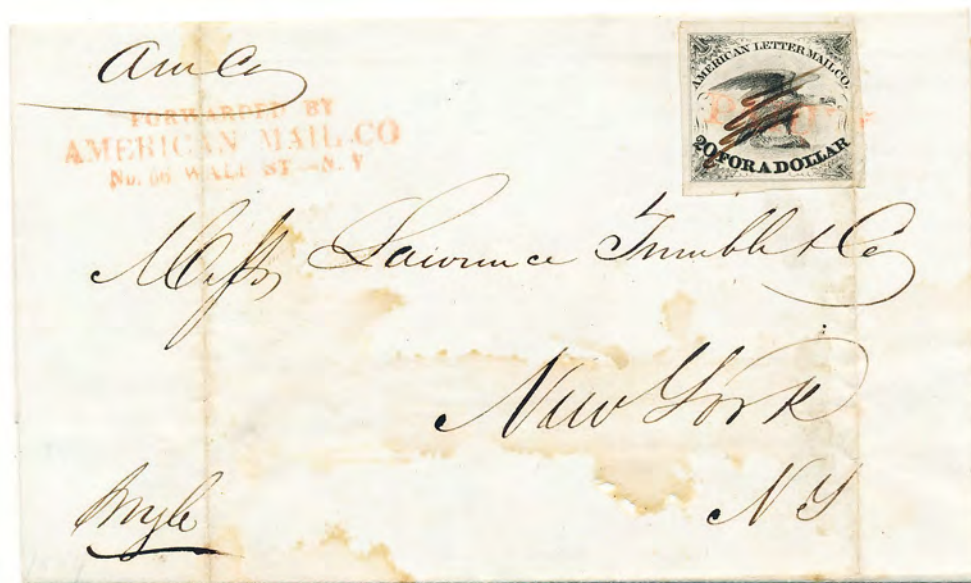 Am Co
FORWARDED BY
AMERICAN MAIL CO
No. 66 WALL ST —N. Y
1 1
AMERICAN LETTER MAIL CO.
PAID
20 FOR A DOLLAR
Messrs Lawrence Trimble & Co
New York
NY
Single